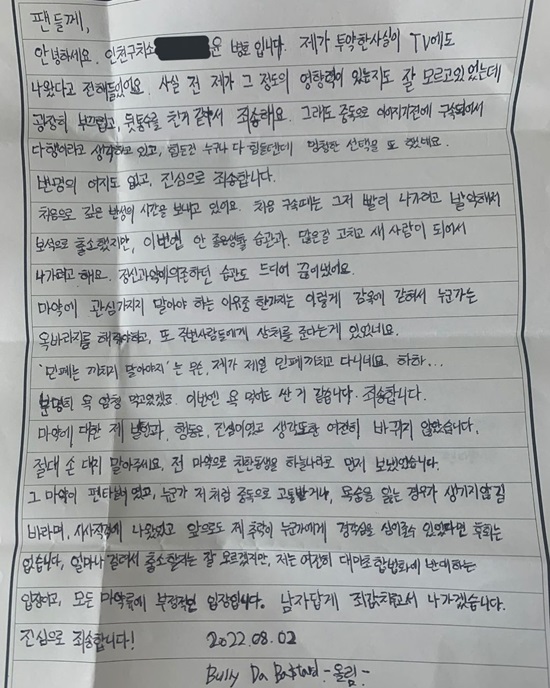 팬들께,
안녕하세요. 인천구치소 윤 병호 입니다. 제가 투약한사실이 TV에도
나왔다고 전해들었어요. 사실 전 제가 그 정도의 영향력이 있는지도 잘 모르고있었는데
굉장히 부끄럽고, 뒷통수를 친거 같아서 죄송해요. 그래도 중독으로 이어지기전에 구속되어서
다행이라고 생각하고 있고, 힘든건 누구나 다 힘들텐데 멍청한 선택을 또 했네요.
변명의 여지도 없고, 진심으로 죄송합니다.
처음으로 깊은 반성의 시간을 보내고 있어요. 처음 구속때는 그저 빨리 나가려고 발악해서
보석으로 출소했지만, 이번엔 안 좋은생활 습관과, 많은걸 고치고 새 사람이 되어서
나가려고 해요. 정신과약에의존하던 습관도 드디어 끊어냈어요.
마약에 관심가지지 말아야 하는 이유중 한가지는 이렇게 감옥에 갇혀서 누군가는
옥바라지를 해줘야하고, 또 주변사람들에게 상처를 준다는게 있었네요.
'민폐는 끼치지 말아야지' 는 무슨, 제가 제일 민폐끼치고 다니네요. 하하...
분명히 욕 엄청 먹고있겠죠. 이번엔 욕 먹어도 싼 거 같습니다. 죄송합니다.
마약에 대한 제 발언과, 행동은, 진심이었고 생각또한 여전히 바뀌지 않았습니다.
절대 손 대지 말아주세요. 전 마약으로 친한동생을 하늘나라로 먼저 보냈었습니다.
그 마약이 펜타닐이었고, 누군가 저처럼 중독으로 고통받거나, 목숨을 잃는 경우가 생기지않길
바라며, 시사직격에 나왔었고 앞으로도 제 추락이 누군가에게 경각심을 심어줄수 있었다면 후회는
없습니다, 얼마나 걸려서 출소할지는 잘 모르겠지만, 저는 여전히 대마초 합법화에 반대하는
입장이고, 모든 마약류에 부정적인 입장입니다. 남자답게 죄값치르고서 나가겠습니다.
진심으로 죄송합니다! 2022.08.02
Bully Da Ba$tard -올림-